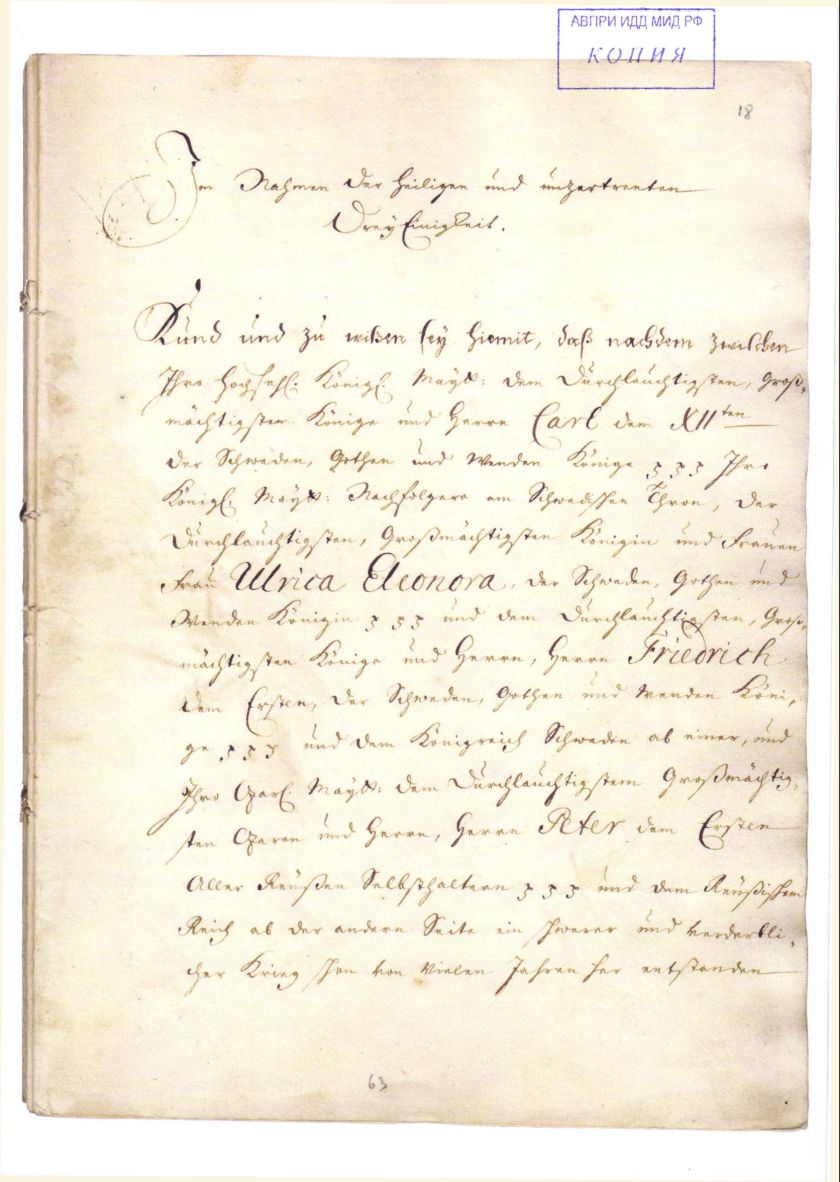 АВПРИ ИДД МИД РФ
КОПИЯ
18
Im Nahmen der heiligen und unzertrenten
DreyEinigkeit.
Kund und zu wißen sey hiemit, daß nachdem zwischen
Ihro Hochseel. Königl. Maytt: dem Durchlauchtigsten, Groß-
mächtigsten Könige und Herrn Carl dem XIIten
der Schweden, Gothen und Wenden Könige Ihro
Königl. Maytt: Nachfolgere am Schwedischen Thron, der
Durchlauchtigsten, Großmächtigsten Königin und Frauen
Frau Ulrica Eleonora, der Schweden, Gothen und
Wenden Königin und dem Durchlauchtigsten, Groß-
mächtigsten Könige und Herrn, Herrn Friedrich
dem Ersten, der Schweden, Gothen und Wenden Köni-
ge und dem Königreich Schweden ab einer, und
Ihro Czarl. Maytt: dem Durchlauchtigstem Großmächtig-
sten Czaren und Herrn, Herrn Peter dem Ersten
Aller Reußen Selbsthaltern und dem Reußischem
Reich ab der andern Seite ein schwerer und verderbli-
cher Krieg schon von vielen Jahren her entstanden
63